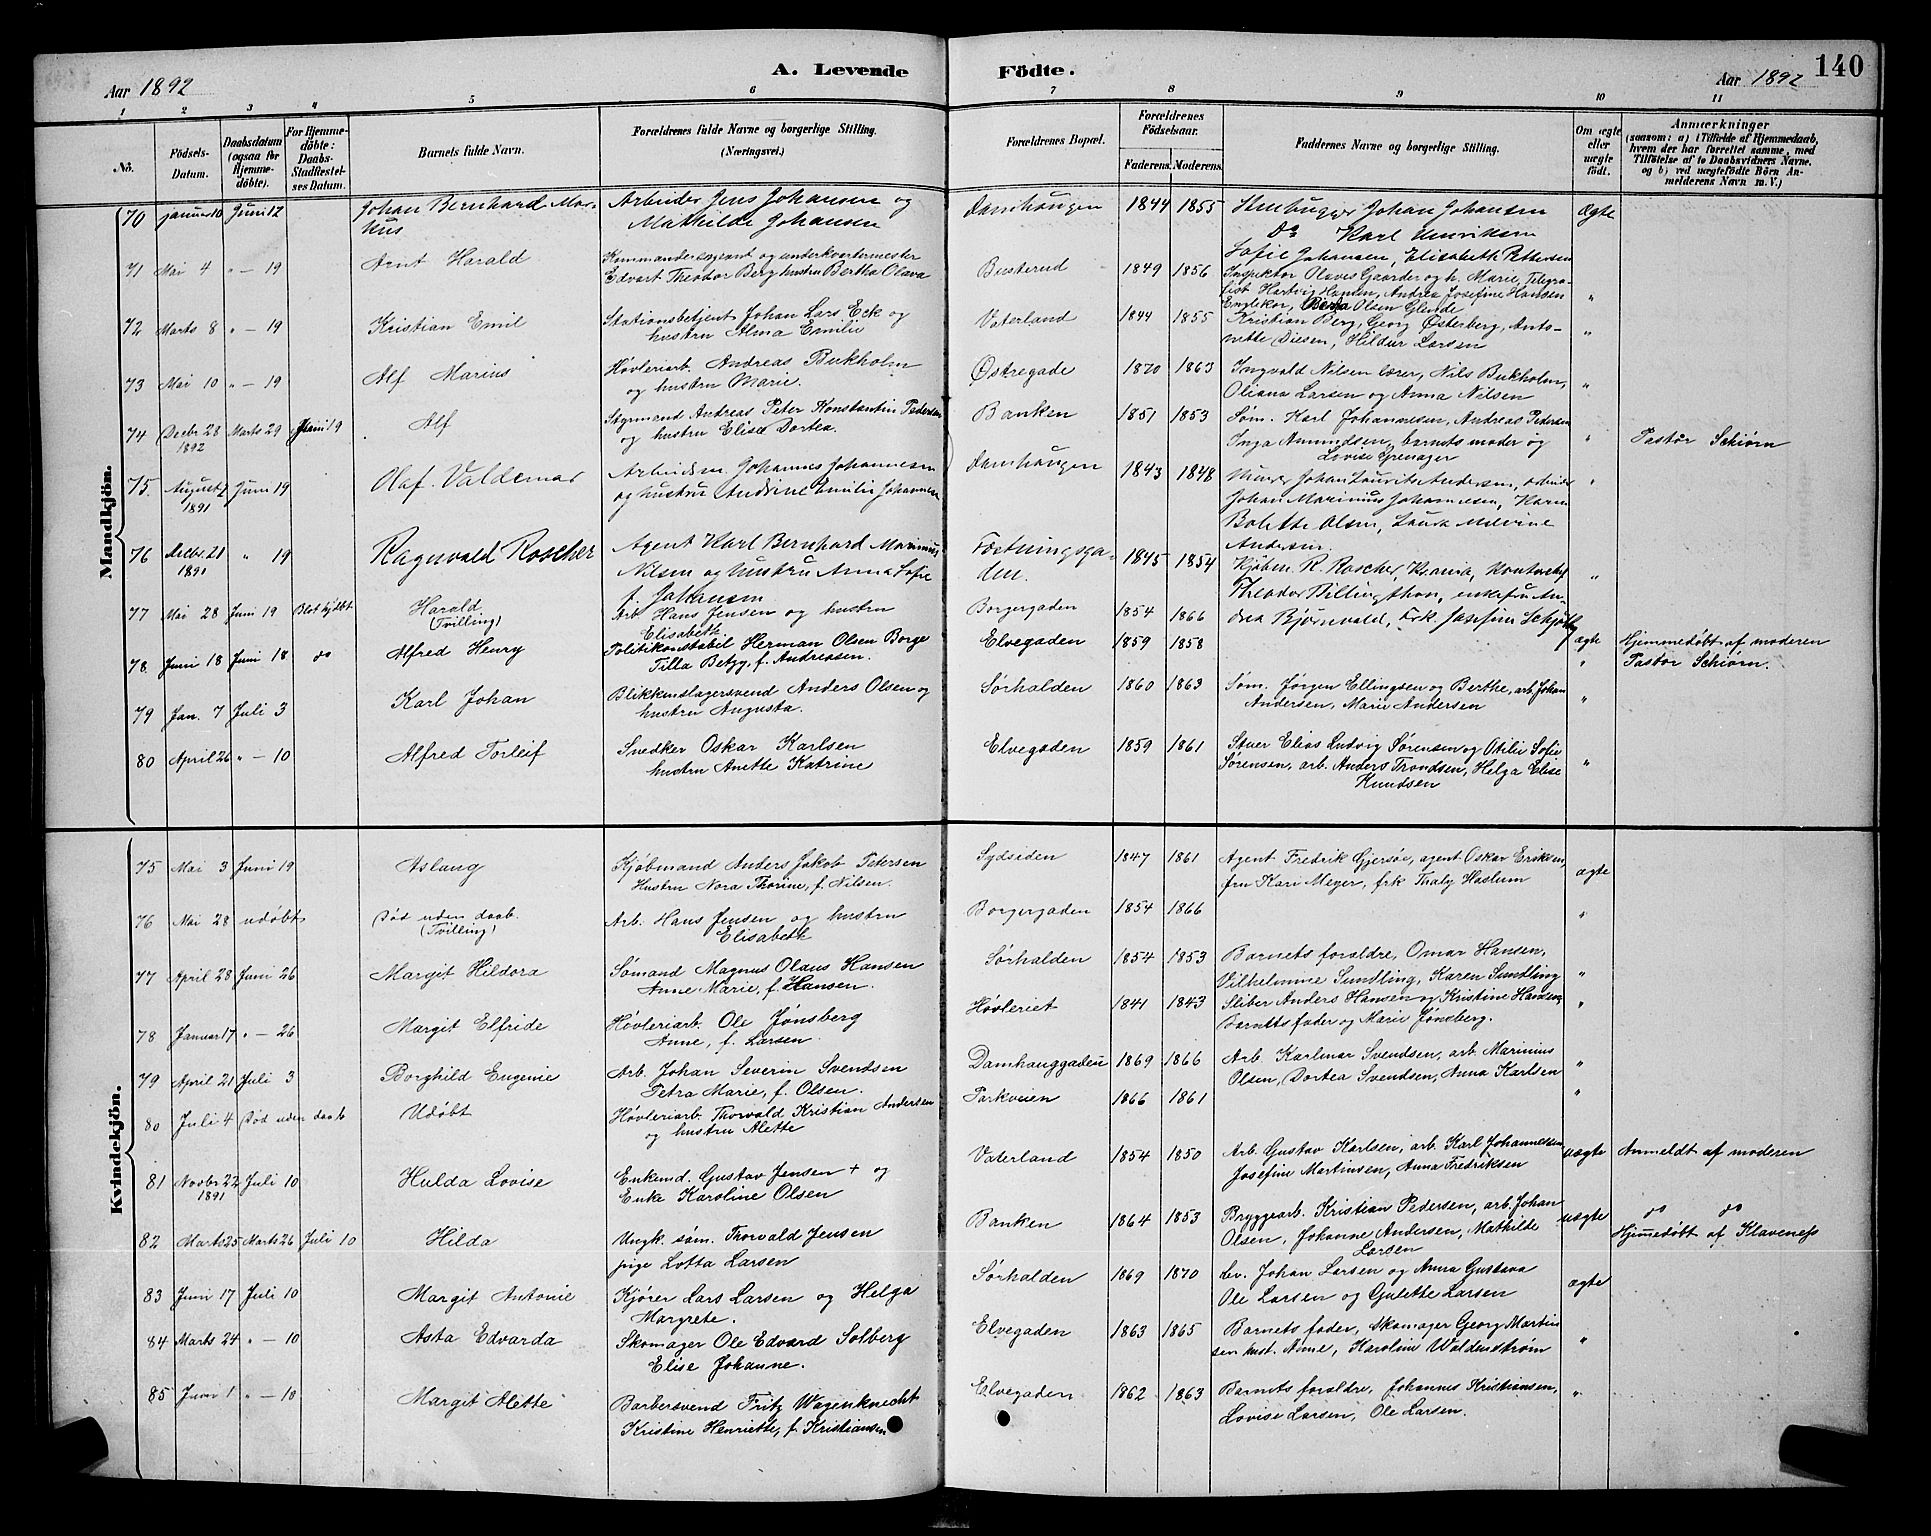 Aar 1892
A. Levende
Födte.
Aar 1892
140
1 2 3 4 5 6 7 8 9 10 11
Nö.
Födsels-Datum.
Daabsdatum (ogsaa for Hjemme-döbte).
For Hjemme-döbte: Daabs-Stadfæstel-ses Datum.
Barnets fulde Navn.
Forældrenes fulde Navne og borgerlige Stilling.
(Næringsvei.)
Forældrenes Bopæl.
Forældrenes Födselsaar.
Faderens. Moderens.
Faddernes Navne og borgerlige Stilling.
Om ægte eller uægte födt.
Anmærkninger
(saasom: a) i Tilfælde af Hjemmedaab,
hvem der har forrettet samme, med
Tilföielse af to Daabsvidners Navne.
og b) ved uægtefödte Börn An-
melderens Navn m. V.)
Mandkjön.
70 Januar 10 Juni 12 Johan Bernhard Mar-
kus
Arbeider Jens Johansen og
Mathilde Johansen
Damhaugen 1844 1855
Stenhugger Johan Johansen
Do Karl Henriksen
Sofie Johansen, Elisabeth Pettersen
Ægte
71 Mai 4 " — 19 Arnt Harald
Kommandersergeant og underkvartermester
Edvart Theodor Berg hustru Bertha Olava
Busterud 1849 1856
Inspektør Olaves Gaarder og h. Marie, Telegra-
fist Hartvig Hansen, Andrea Josefine Hansen
"
72 Marts 8 " — 19 Kristian Emil
Stationsbetjent Johan Lars Eck og
hustru Alma Emilie
Vaterland 1844 1855
Olsen Glende
Kristian Berg, Georg Østerberg, Anto-
nette Diesen, Hildur Larsen
"
73 Mai 10 " — 19 Alf Marius
Høvleriarb. Andreas Bukholm
og hustru Marie.
Østregade 1870 1863
Ingvald Nilsen lærer, Nils Bukholm,
Oliana Larsen og Anna Nilsen
"
74 Decbr 28 1892 Marts 29 Juni 19 Alf
Styrmand Andreas Peter Konstantin Pedersen
og hustru Elise Dortea.
Banken 1851 1853
Søm. Karl Johannesen, Andreas Pedersen
Inga Amundsen, barnets moder og
Lovise Grenager
" Pastor Schiørn
75. August 7 1891 Juni 19 Olaf Valdemar
Arbeidsm. Johannes Johannesen
og hustru Andrine Emilie Johannesen
Damhaugen 1843 1848
Murer Johan Laurits Andersen, arbeider
Johan Marinius Johannesen, Karen
Bolette Olsen, Laura Milvine
Andersen.
"
76 Decbr. 21 1891 " 19 Ragnvald Roscher
Agent Karl Bernhard Marinius
Nilsen og hustru Anna Sofie
f. Johansen
Fæstningsga-
den. 1845 1854
Kjøbm. R. Roscher, Kr.ania, kontorchef
Theodor Tillingthon, enkefru An-
drea Bjørnvald, Frk. Josefine Schjøtty
"
77 Mai 28 Juni 19 Blot hjdbt Harald
(Tvilling)
Arb. Hans Jensen og hustru
Elisabeth.
Borgergaden 1854 1866
ægte Hjemmedøbt af moderen
78. Juni 18 Juni 18 do Alfred Henry
Politikonstabel Herman Olsen Borge
Tilla Betzy, f. Andreasen.
Elvegaden 1859 1858
" Pastor Schiørn.
79 Jan. 7 Juli 3 Karl Johan
Blikkenslagersvend Anders Olsen og
hustru Augusta.
Sørhalden 1860 1863
Søm. Jørgen Ellingsen og Berthe, arb. Johan
Andersen, Marie Andersen
"
80 April 26 " — 10 Alfred Torleif
Snedker Oskar Karlsen
hustru Anette Katrine
Elvegaden 1859 1861
Stuer Elias Ludvig Sørensen og Otilie Sofie
Sørensen, arb. Anders Trondsen, Helga Elise
Knudsen
"
Kvindekjön.
75 Mai 3 Juni 19 Aslaug
Kjøbmand Anders Jakob Petersen
Hustru Nora Thorine, f. Nilsen.
Sydsiden 1847 1861
Agent Fredrik Gjersøe, agent Oskar Eriksen,
fru Kari Meyer, frk Thaly Haslum
ægte
76 Mai 28 udøbt Død uden daab.
(Tvilling)
Arb. Hans Jensen og hustru
Elisabeth
Borgergaden 1854 1866
"
77 April 28 Juni 26 Margit Hildora
Sømand Magnus Olaus Hansen
Anne Marie, f. Hansen.
Sørhalden 1854 1853
Barnets foraldre, Omar Hansen,
Vilhelmine Sundling, Karen Sundling
"
78 Januar 17 " — 26 Margit Elfride
Høvleriarb. Ole Jønsberg
Anne, f. Larsen.
Høvleriet 1841 1843
Sliber Anders Hansen og Kristine Hansen,
Barnets fader og Marie Jønsberg.
"
79 April 21 Juli 3 Borghild Eugenie
Arb. Johan Severin Svendsen
Petra Marie, f. Olsen.
Damhauggaden 1869 1866
Arb. Karlmar Svendsen, arb. Marinius
Olsen, Dortea Svendsen, Anna Karlsen
"
80 Juli 4 Død uden daab Udøbt
Høvleriarb. Thorvald Kristian Andersen
og hustru Alette
Parkveien 1866 1861
"
81 Novbr 22 1891 Juli 10 Hulda Lovise
Enkemd. Gustav Jensen + og
Enke Karoline Olsen
Vaterland 1854 1850
Arb. Gustav Karlsen, arb. Karl Johannesen
Josefine Martinsen, Anna Fredriksen
uægte Anmeldt af moderen
82 Marts 25 Marts 26 Juli 10 Hilda
Ungk. søm. Thorvald Jensen
pige Lotta Larsen
Banken 1864 1853
Bryggearb. Kristian Pedersen, arb. Johan
Olsen, Johanne Andersen, Mathilde
Larsen
uægte do do
Hjemmedøbt af Klaveness
83 Juni 17 Juli 10 Margit Antonie
Kjører Lars Larsen og Helga
Margrete.
Sørhalden 1869 1870
Johan Larsen og Anna Gustava
Ole Larsen og Gulette Larsen
ægte
84 Marts 24 " — 10 Asta Edvarda
Skomager Ole Edvard Solberg
Elise Johanne.
Elvegaden 1863 1865
Barnets fader, skomager Georg Martin
sen hust. Anne, Karoline Waldenstrøm
"
85 Juni 1 " — 10 Margit Alette
Barbersvend Fritz Wagenknecht
Kristine Henriette, f. Kristiansen
Elvegaden 1862 1863
Barnets foraldre, Johannes Kristiansen,
Lovise Larsen, Ole Larsen.
"